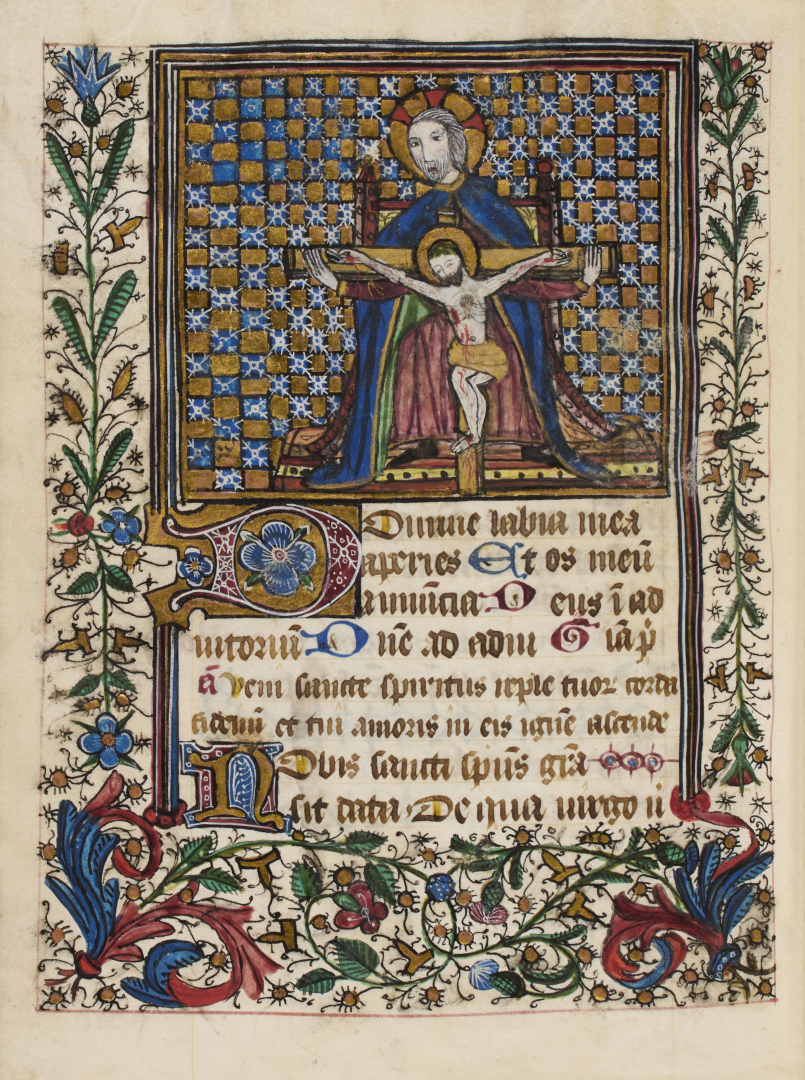 Domine labia mea
aperies Et os meū
annūcia Deus ī ad
iutoriū Dn̄e ad adiu Glīa p̄
ā Veni sancte spiritus reple tuor corda
fideliū et tui amoris in eis ignē ascende
Nobis sancti spūs grā
sit data De qua virgo ī